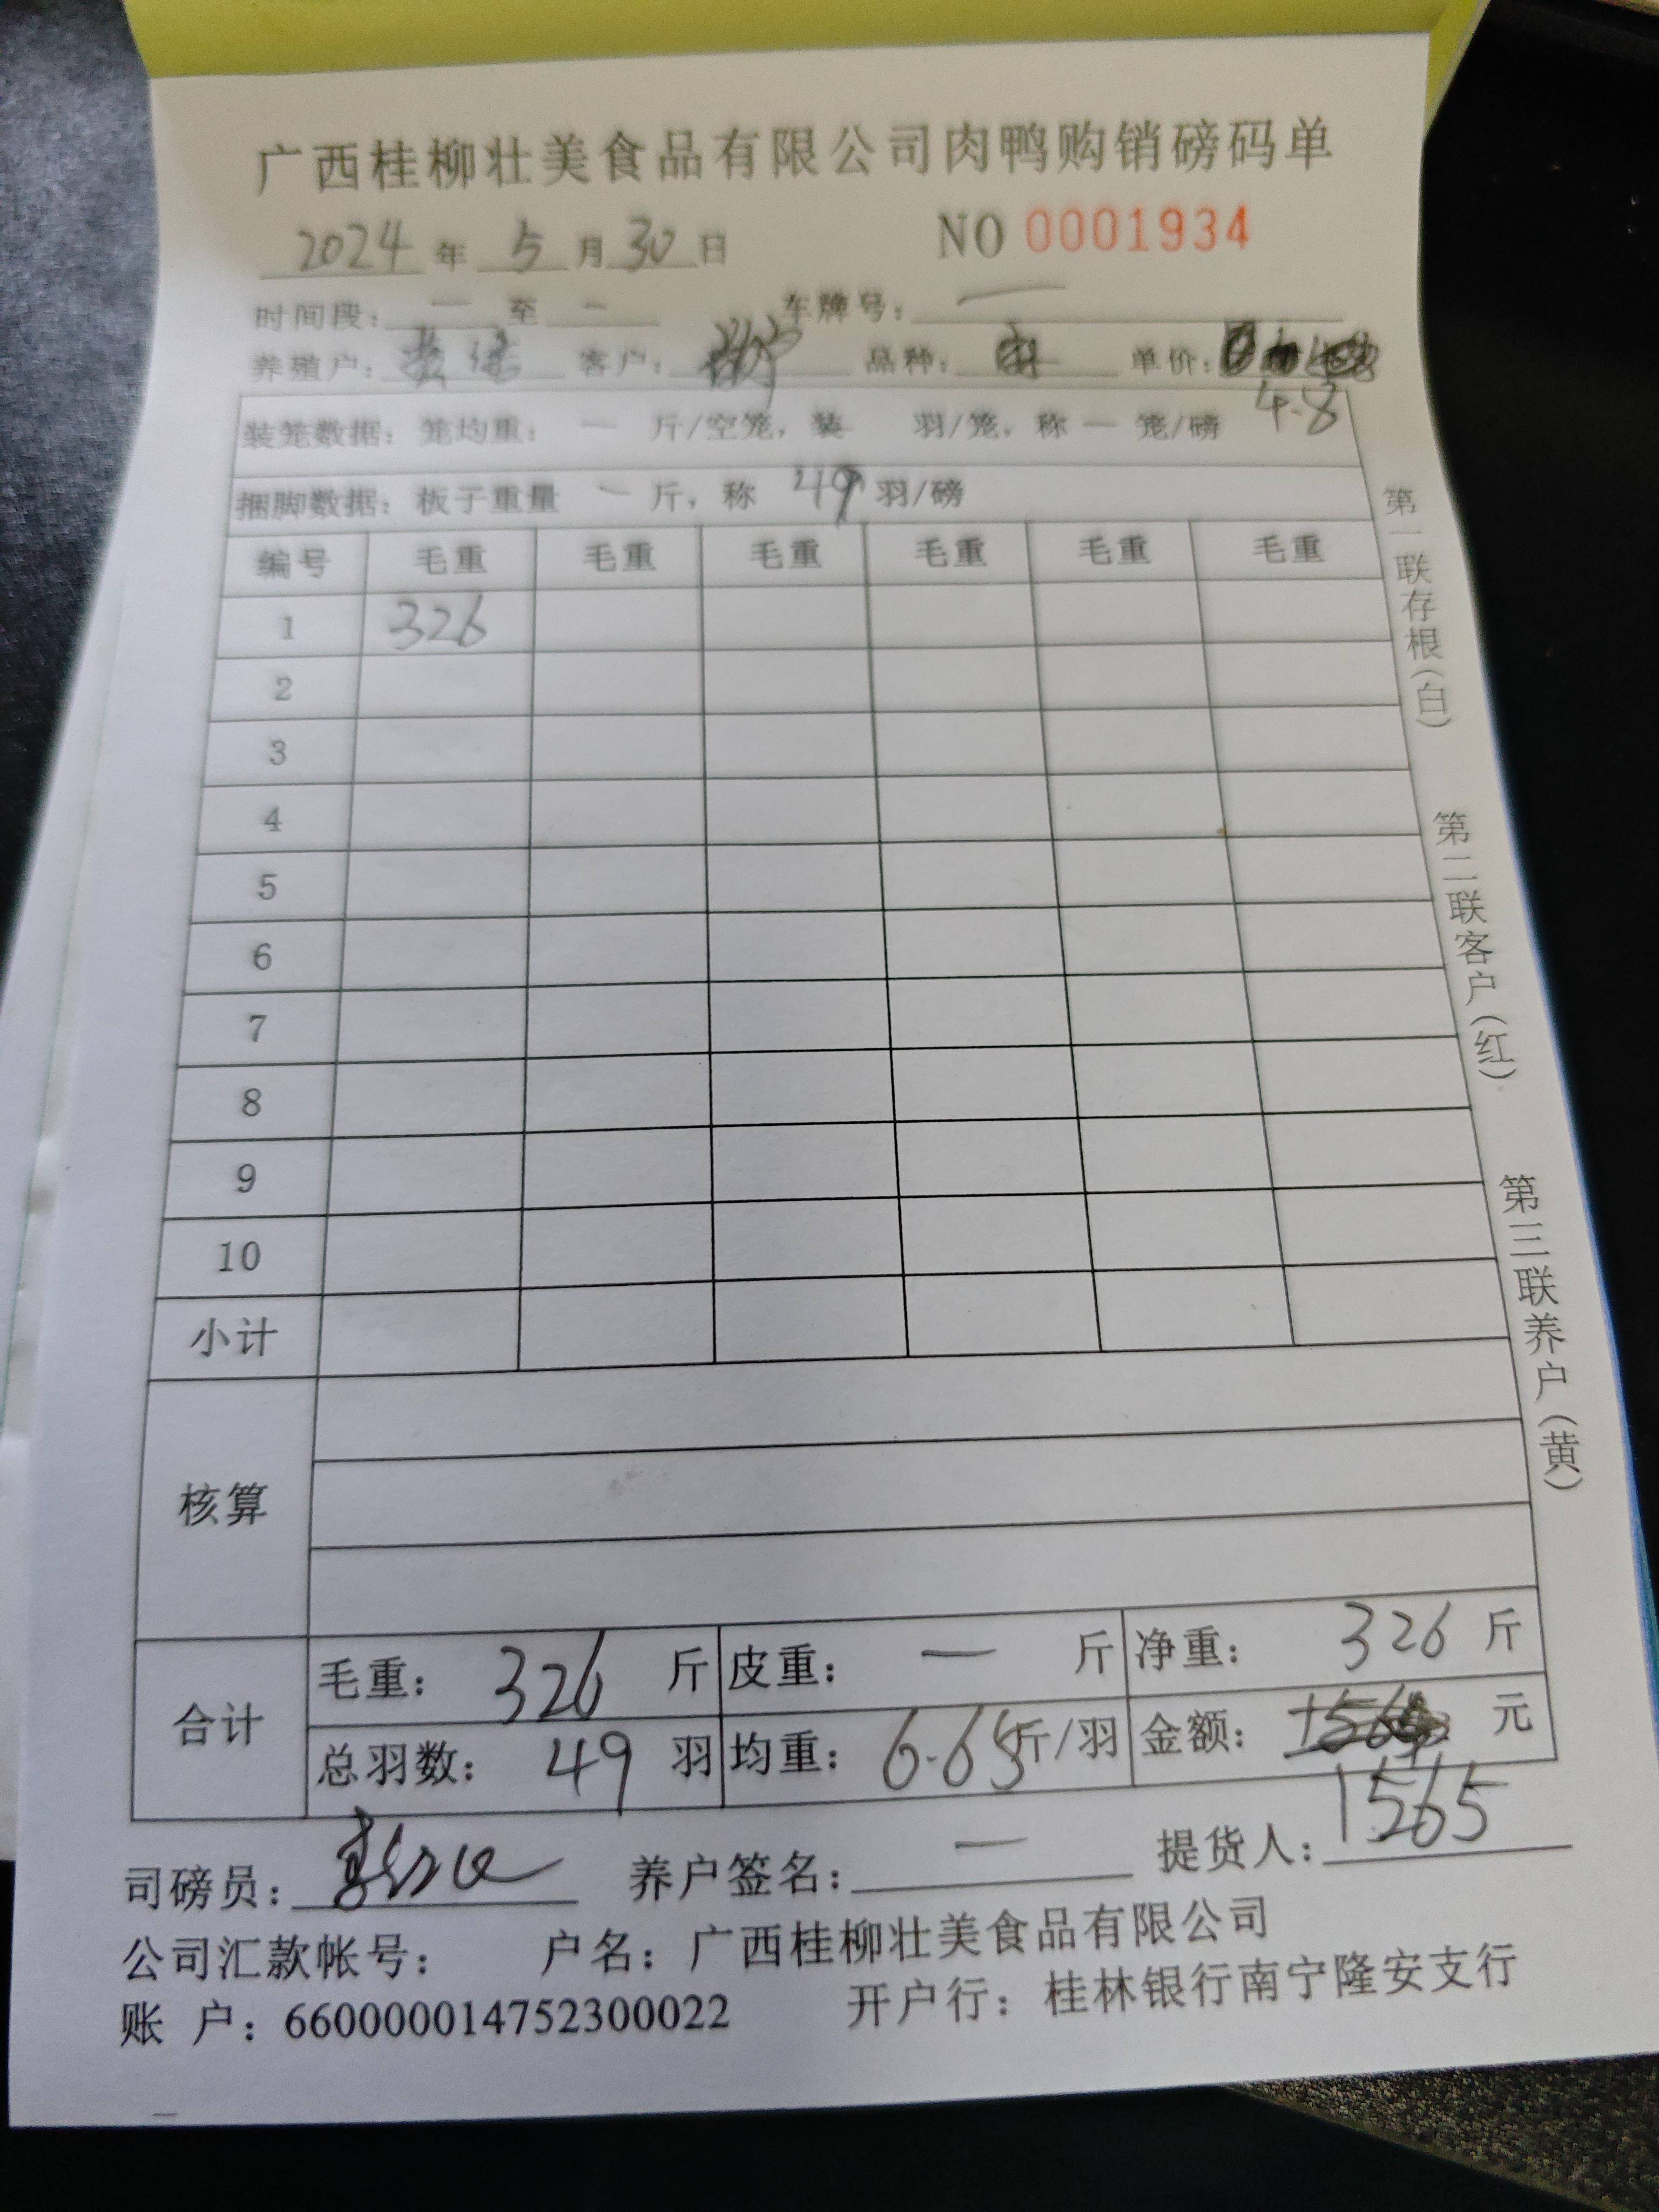 广西桂柳壮美食品有限公司肉鸭购销磅码单
2024 年 5 月 30 日 NO 0001934
时间段: 一 至 一 车牌号: 一
养殖户: 客户: 品种: 单价:
4.8
装笼数据: 笼均重: 一 斤/空笼, 装 羽/笼, 称 一 笼/磅
捆脚数据: 板子重量 一 斤, 称 49 羽/磅
编号 毛重 毛重 毛重 毛重 毛重 毛重
1 326
2
3
4
5
6
7
8
9
10
小计
核算
合计
毛重: 326 斤 皮重: 一 斤 净重: 326 斤
总羽数: 49 羽 均重: 6.65 斤/羽 金额: 元
1565
司磅员: 养户签名: 一 提货人:
公司汇款帐号: 户名: 广西桂柳壮美食品有限公司
账 户: 660000014752300022 开户行: 桂林银行南宁隆安支行
第一联存根(白)
第二联客户(红)
第三联养户(黄)